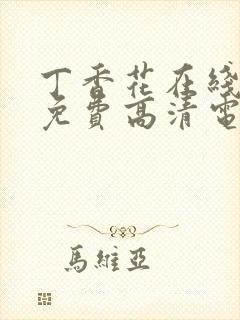 丁香花在线
免費高清電
馬維亞